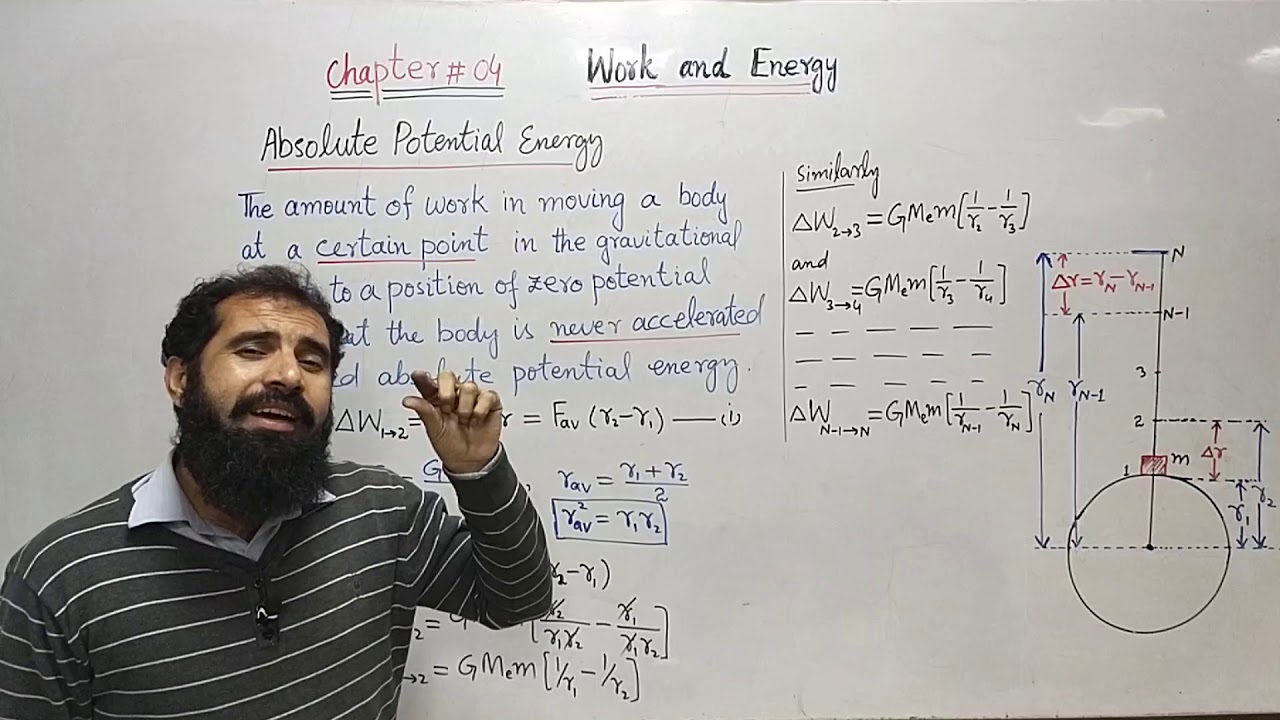 Chapter # 04 Work and Energy
Absolute Potential Energy
The amount of work in moving a body
at a certain point in the gravitational
to a position of zero potential
at the body is never accelerated
absolute potential energy.
ΔW₁→₂ = r = Fav (r₂-r₁) — (i)
G rav = (r₁ + r₂)/2
r²av = r₁r₂
r₂-r₁)
₂ = G [r₂/r₁r₂ - r₁/r₁r₂]
→₂ = GMem [1/r₁ - 1/r₂]
Similarly
ΔW₂→₃ = GMem [1/r₂ - 1/r₃]
and
ΔW₃→₄ = GMem [1/r₃ - 1/r₄]
ΔW N-1→N = GMem [1/rN-1 - 1/rN]
N
Δr = rN - rN-1
N-1
3
rN rN-1
2
Δr
1 m
r₁ r₂